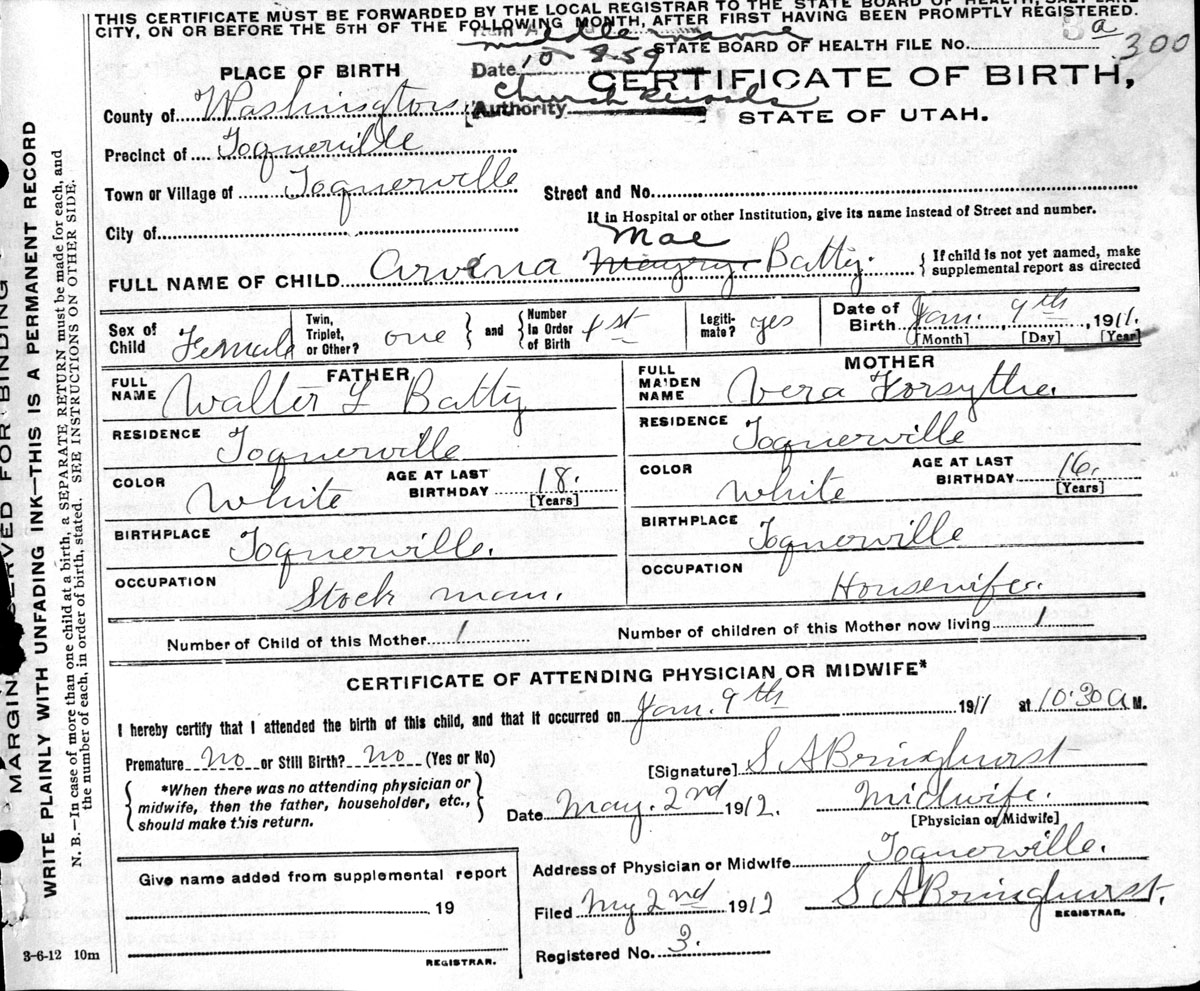 THIS CERTIFICATE MUST BE FORWARDED BY THE LOCAL REGISTRAR TO THE STATE BOARD OF HEALTH, SALT LAKE
CITY, ON OR BEFORE THE 5TH OF THE FOLLOWING MONTH, AFTER FIRST HAVING BEEN PROMPTLY REGISTERED.
middle name
STATE BOARD OF HEALTH FILE No. 3a 300
PLACE OF BIRTH
Date 10-8-59
CERTIFICATE OF BIRTH,
County of Washington
Authority Church Records
STATE OF UTAH.
Precinct of Toquerville
Town or Village of Toquerville
Street and No.
If in Hospital or other Institution, give its name instead of Street and number.
City of
Mae
FULL NAME OF CHILD Arvena Batty.
If child is not yet named, make supplemental report as directed
Sex of Child Female
Twin, Triplet, or Other? one and Number in Order of Birth 1st
Legitimate? yes
Date of Birth Jan. 9th, 1911.
[Month] [Day] [Year]
FATHER
FULL NAME Walter L Batty
RESIDENCE Toquerville
COLOR White AGE AT LAST BIRTHDAY 18. [Years]
BIRTHPLACE Toquerville.
OCCUPATION Stock man.
MOTHER
FULL MAIDEN NAME Vera Forsythe.
RESIDENCE Toquerville
COLOR White AGE AT LAST BIRTHDAY 16. [Years]
BIRTHPLACE Toquerville
OCCUPATION Housewife.
Number of Child of this Mother 1
Number of children of this Mother now living 1
CERTIFICATE OF ATTENDING PHYSICIAN OR MIDWIFE*
I hereby certify that I attended the birth of this child, and that it occurred on Jan. 9th 1911 at 10:30 A M.
Premature No or Still Birth? No (Yes or No)
*When there was no attending physician or
midwife, then the father, householder, etc.,
should make this return.
[Signature] S A Bringhurst
Date May. 2nd 1912. Midwife.
[Physician or Midwife]
Address of Physician or Midwife Toquerville.
Give name added from supplemental report
19
REGISTRAR.
Filed My 2nd 1912 S A Bringhurst.
REGISTRAR.
Registered No. 3.
3-6-12 10m
MARGIN RESERVED FOR BINDING
WRITE PLAINLY WITH UNFADING INK—THIS IS A PERMANENT RECORD
N. B.—In case of more than one child at a birth, a SEPARATE RETURN must be made for each, and
the number of each, in order of birth, stated. SEE INSTRUCTIONS ON OTHER SIDE.